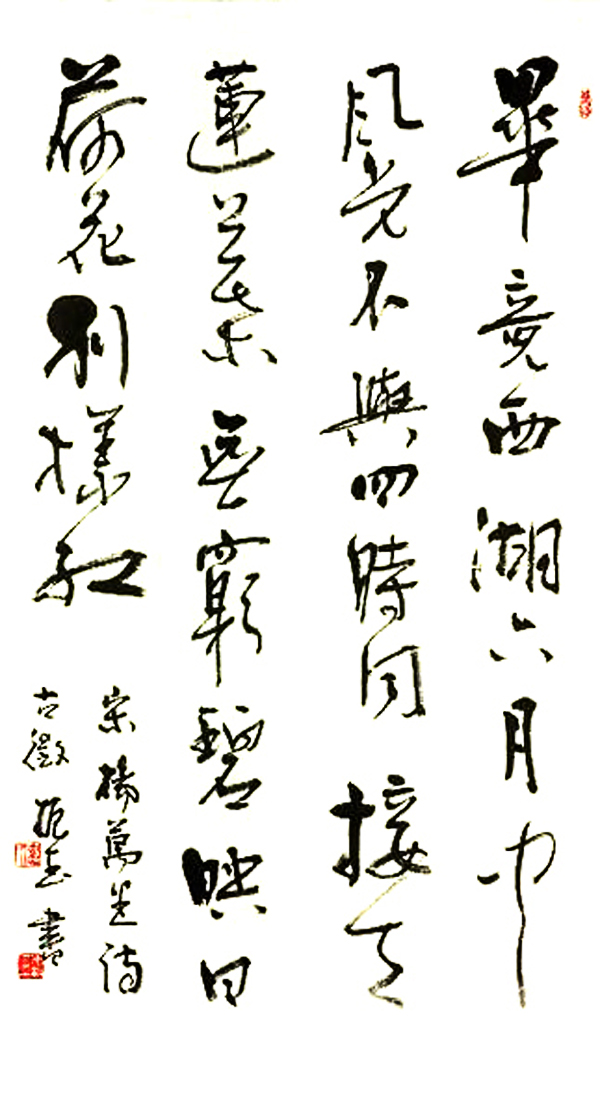 畢竟西湖六月中
風光不與四時同接天
蓮葉無窮碧映日
荷花別樣紅
宋楊萬里詩
古徽 書